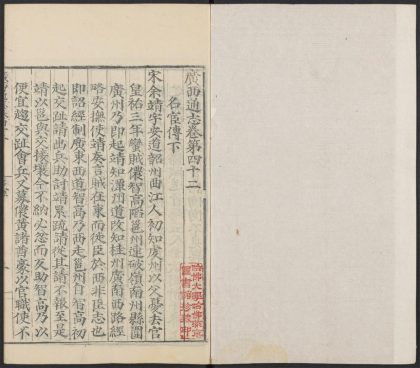 廣西通志卷第四十二
名宦傳下
宋余靖字安道韶州曲江人初知虔州以父憂去官
皇祐三年蠻賊儂智高陷邕州連破嶺南州縣圍
廣州乃即起靖知潭州道改知桂州廣南西路經
略安撫使靖奏言賊在東而徙臣於西非臣志也
即詔經制廣東西道智高乃西走邕州自智高初
起交趾請出兵助討靖累疏請從其請不報至是
靖以邕與交接壤今不納必忿而反助智高乃以
便宜趨交趾會兵又募儂黃諸酋豪以官職使不